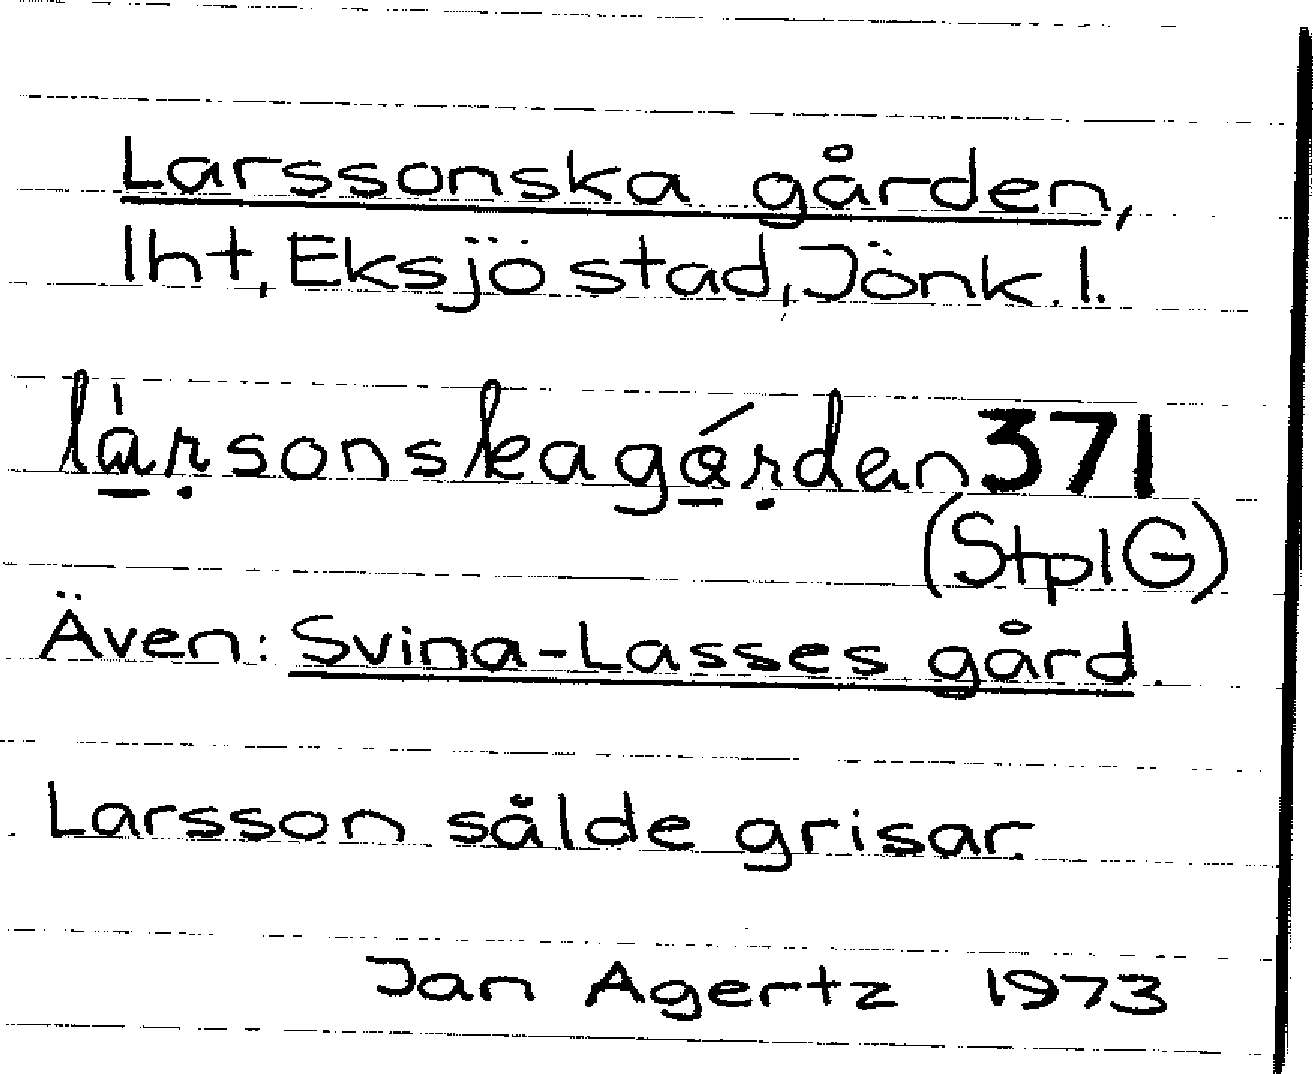 Larssonska gården,
lht, Eksjö stad, Jönk. l.
lạrsonskagárden 371
(StplG)
Även: Svina-Lasses gård.
Larsson sålde grisar.
Jan Agertz 1973